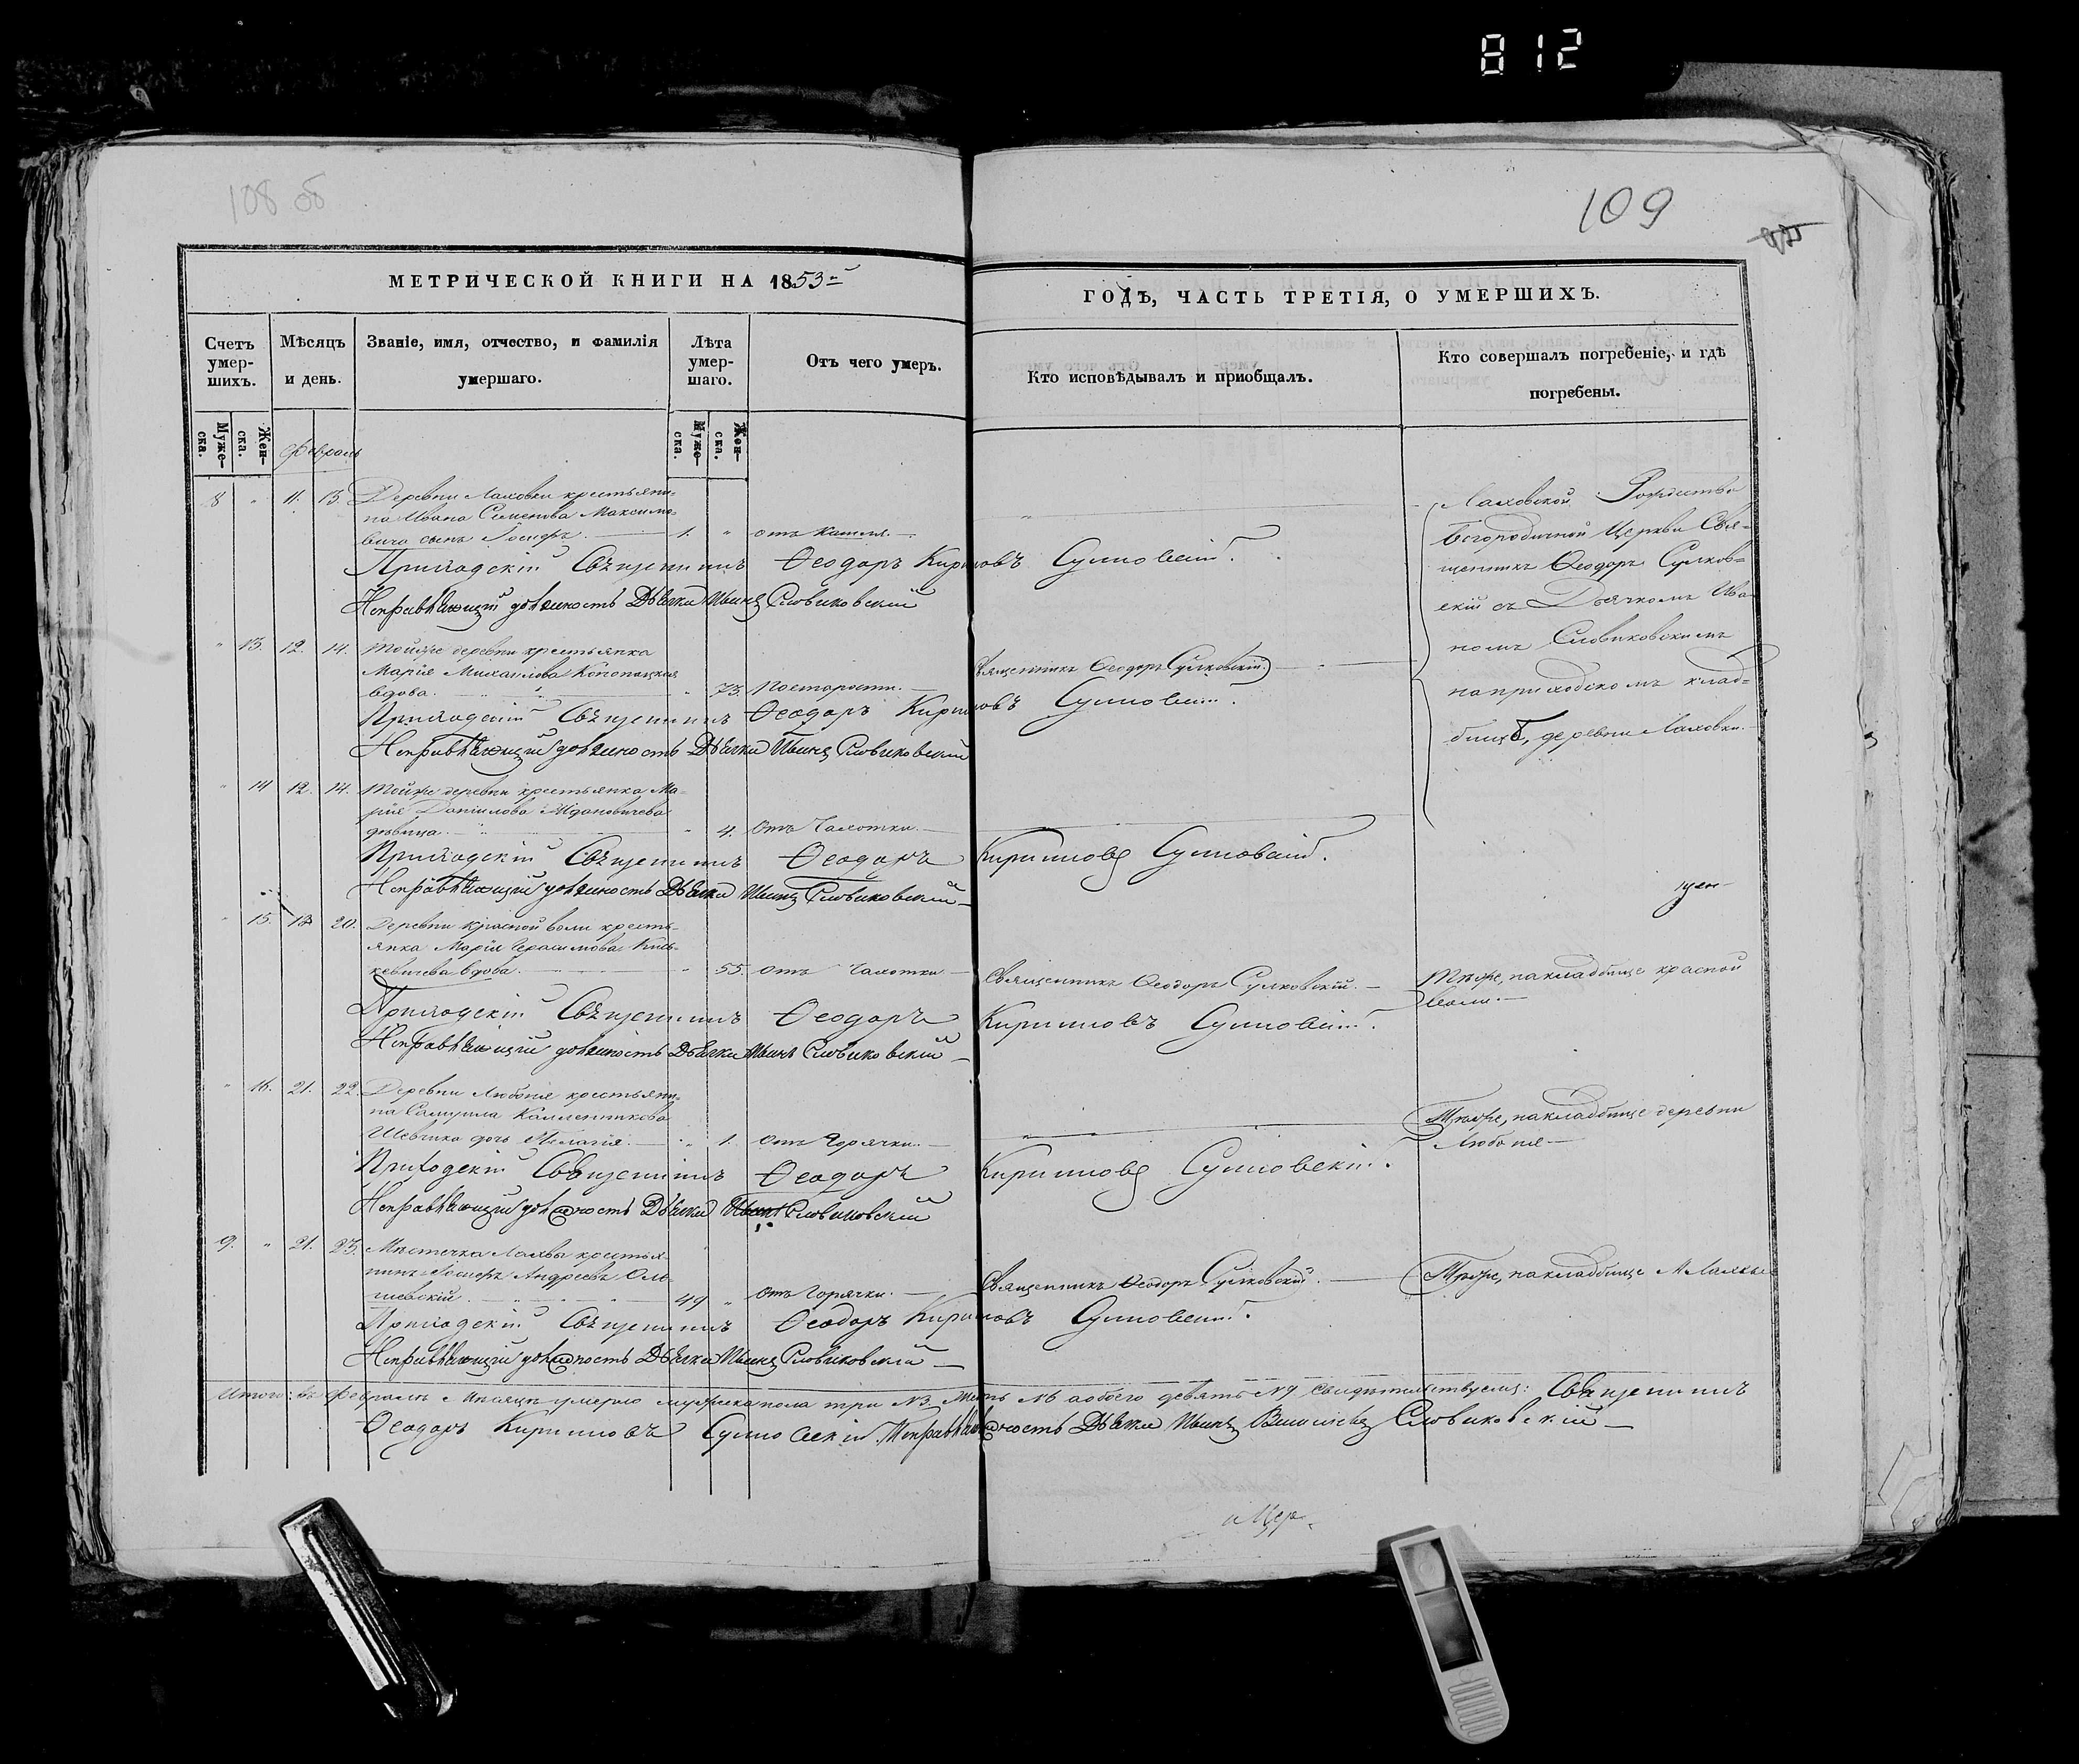 812
108 об
109
МЕТРИЧЕСКОЙ КНИГИ НА 1853
ГОДЪ, ЧАСТЬ ТРЕТІЯ, О УМЕРШИХЪ.
Счетъ умер-шихъ.
Мѣсяцъ и день.
Званіе, имя, отчество, и фамилія умершаго.
Лѣта умер-шаго.
Отъ чего умеръ.
Кто исповѣдывалъ и приобщалъ.
Кто совершалъ погребеніе, и гдѣ погребены.
Муже-ска.
Жен-ска.
Муже-ска.
Жен-ска.
Февраль
8 " 11. 13. Деревни Лаховки крестьяни-
на Ивана Семенова Максимо-
вича сынъ Іосифъ. 1. " отъ кашля.
Приходскій Священникъ Ѳеодоръ Кириловъ Сулковскій.
Исправляющій должность Дьячка Иванъ Словиковскій
Лаховской Рождество
Богородичной Церкви Свя-
щенникъ Ѳеодоръ Сулков-
скій съ Дьячкомъ Ива-
номъ Словиковскимъ
на приходскомъ клад-
бищѣ, деревни Лаховки.
" 13. 12. 14. Тойже деревни крестьянка
Марія Михаилова
вдова. " 73. По старости. Священникъ Ѳеодоръ Сулковскій.
Приходскій Священникъ Ѳеодоръ Кириловъ Сулковскій.
Исправляющій должность Дьячка Иванъ Словиковскій
" 14 12. 14. Тойже деревни крестьянка Ма-
рія Даніилова
дѣвица. " 4. Отъ Чахотки.
Приходскій Священникъ Ѳеодоръ Кириловъ Сулковскій.
Исправляющій должность Дьячка Иванъ Словиковскій
щен
" 15. 18 20. Деревни Красной воли кресть-
янка Марія Герасимова Кись-
кевичева вдова. " 55. отъ Чахотки Священникъ Ѳеодоръ Сулковскій.
Тѣже, на кладбище красной
воли.
Приходскій Священникъ Ѳеодоръ Кириловъ Сулковскій.
Исправляющій должность Дьячка Иванъ Словиковскій
" 16. 21. 22. Деревни Любоня крестьяни-
на Самуила Каленикова
Шевчика дочь Пелагія. " 1. отъ Горячки.
Тѣже, на кладбище деревни
Любоня
Приходскій Священникъ Ѳеодоръ Кириловъ Сулковскій.
Исправляющій должность Дьячка Иванъ Словиковскій
9. " 21. 23. Мѣстечка Лахвы крестья-
нинъ Іосифъ Андреевъ Оль-
шевскій. 49 " отъ Горячки. Священникъ Ѳеодоръ Сулковскій.
Тѣже, на кладбище М. Лахвы
Приходскій Священникъ Ѳеодоръ Кириловъ Сулковскій.
Исправляющій должность Дьячка Иванъ Словиковскій
Итого: въ Февралѣ Мѣсяцѣ умерло мужеска пола три №3 Женъ №6 а обоего девять №9 свидѣтельствуемъ: Священникъ
Ѳеодоръ Кириловъ Сулковскій. Исправляющ должность Дьячка Иванъ Словиковскій